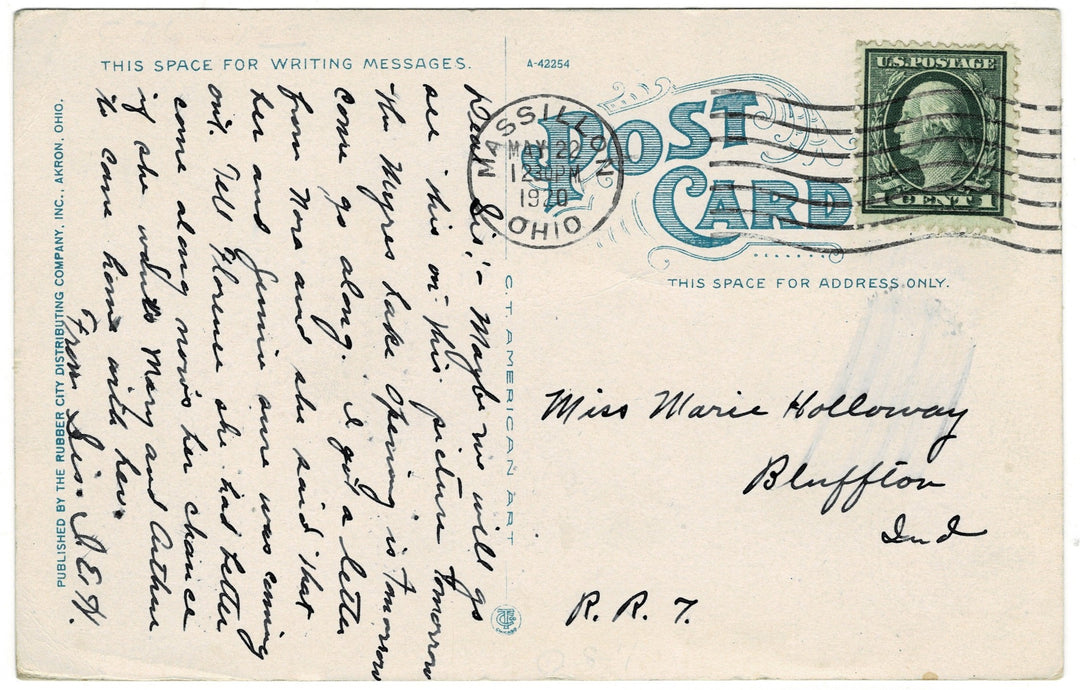 THIS SPACE FOR WRITING MESSAGES.
Dear Sis:- Maybe we will go
see this on this picture tomorrow
the Myres Lake Opening is tomorrow
come go along. I got a letter
from Nora and she said that
her and Jimmie sure was coming
out. Tell Florence she had better
come along now's her chance
if she wants Mary and Arthur
to come home with her.
From Sis. I. E. H.
PUBLISHED BY THE RUBBER CITY DISTRIBUTING COMPANY, INC., AKRON, OHIO.
C.T. AMERICAN ART
A-42254
POST CARD
MASSILLON
MAY 22
12 30 PM
1920
OHIO
U.S. POSTAGE
1 CENT 1
THIS SPACE FOR ADDRESS ONLY.
Miss Marie Holloway
Bluffton
Ind
R. R. 7.